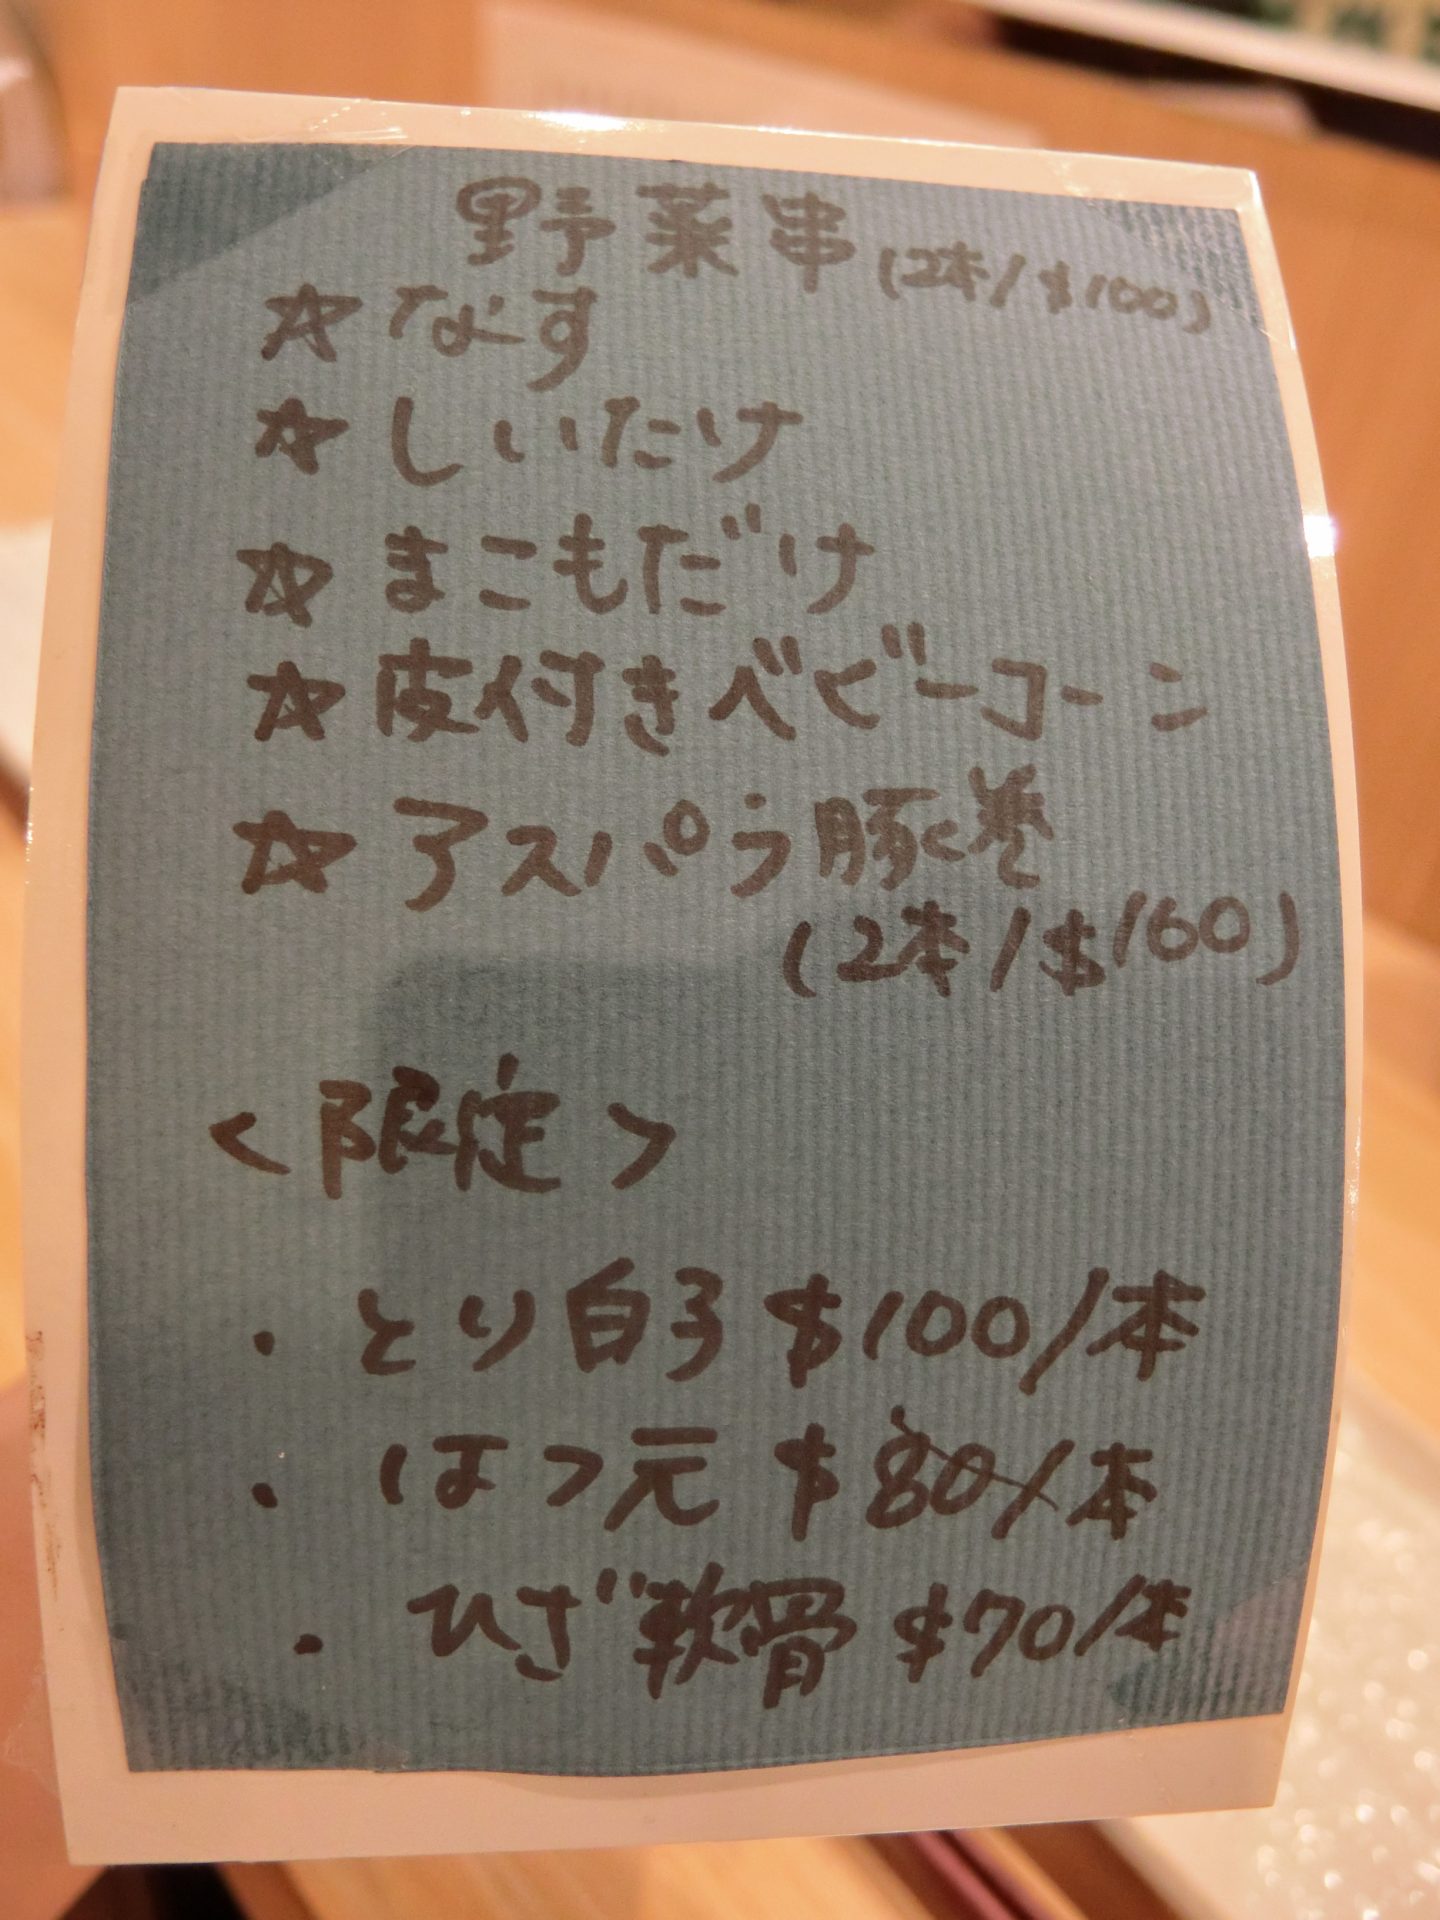 野菜串 (2本/$100)
☆ なす
☆ しいたけ
☆ まこもだけ
☆ 皮付きベビーコーン
☆ アスパラ豚巻
(2本/$160)
<限定>
・とり白子 $100/本
・はつ元 $80/本
・ひざ軟骨 $70/本